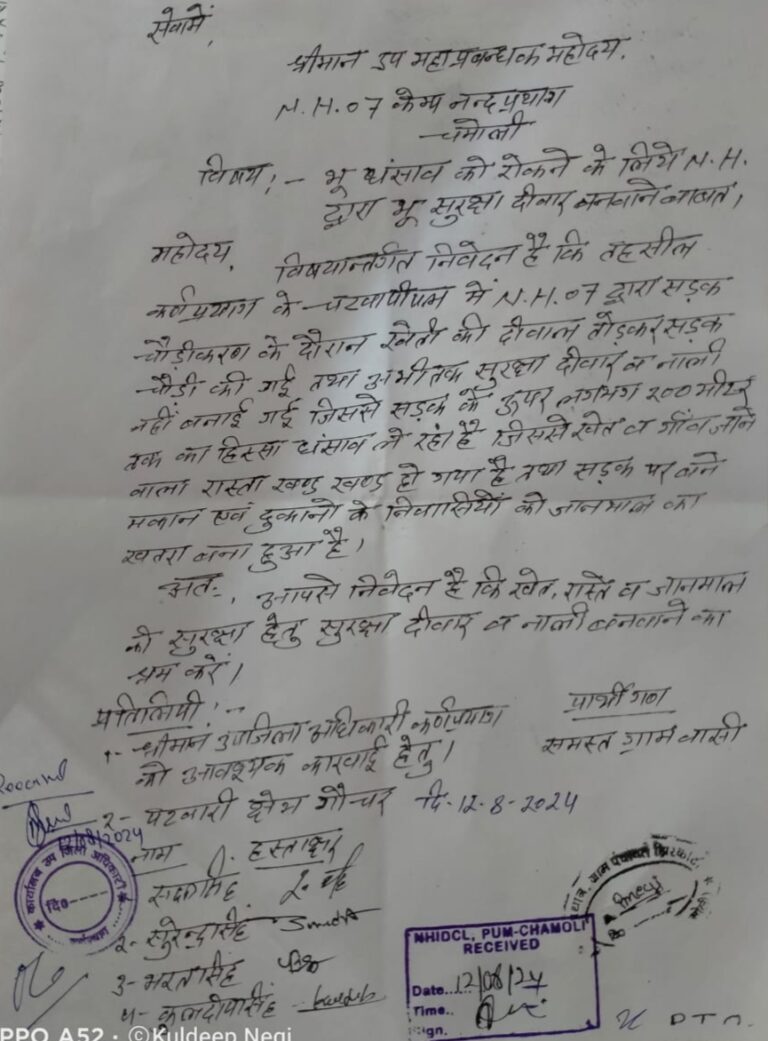 सेवामें,
श्रीमान उप महाप्रबन्धक महोदय,
N.H.07 केम्प नन्दप्रयाग
चमोली
विषय:- भू धंसाव को रोकने के लिये N.H.
द्वारा भू सुरक्षा दीवार बनवाने बाबत।
महोदय, विषयान्तर्गत निवेदन है कि तहसील
कर्णप्रयाग के चटवापीपल में N.H.07 द्वारा सड़क
चौड़ीकरण के दौरान खेतों की दीवाल तोड़कर सड़क
चौड़ी की गई तथा अभीतक सुरक्षा दीवार व नाली
नहीं बनाई गई जिससे सड़क के ऊपर लगभग 200 मीटर
तक का हिस्सा धंसाव ले रहा है जिससे खेत व गाँव जाने
वाला रास्ता खण्ड खण्ड हो गया है तथा सड़क पर बने
मकान एवं दुकानो के निवासियों को जानमाल का
खतरा बना हुआ है।
अत:, आपसे निवेदन है कि खेत, रास्ते व जानमाल
की सुरक्षा हेतु सुरक्षा दीवार व नाली बनवाने का
श्रम करें।
प्रतिलिपी:-
प्रार्थी गण
1- श्रीमान उपजिला अधिकारी कर्णप्रयाग
समस्त ग्राम वासी
को आवश्यक कारवाई हेतु।
2- पटवारी क्षेत्र गौचर दि-12-8-2024
12/08/2024
नाम हस्ताक्षर
कार्यालय उप जिला अधिकारी
दि०
2- सुरेन्द्रसिंह
3- भरतसिंह
4- कुलदीपसिंह
ग्राम पंचायत
NHIDCL, PUM-CHAMOLI
RECEIVED
Date...12/08/24
Time..
Sign.
PPO A52 · ©Kuldeep Negi